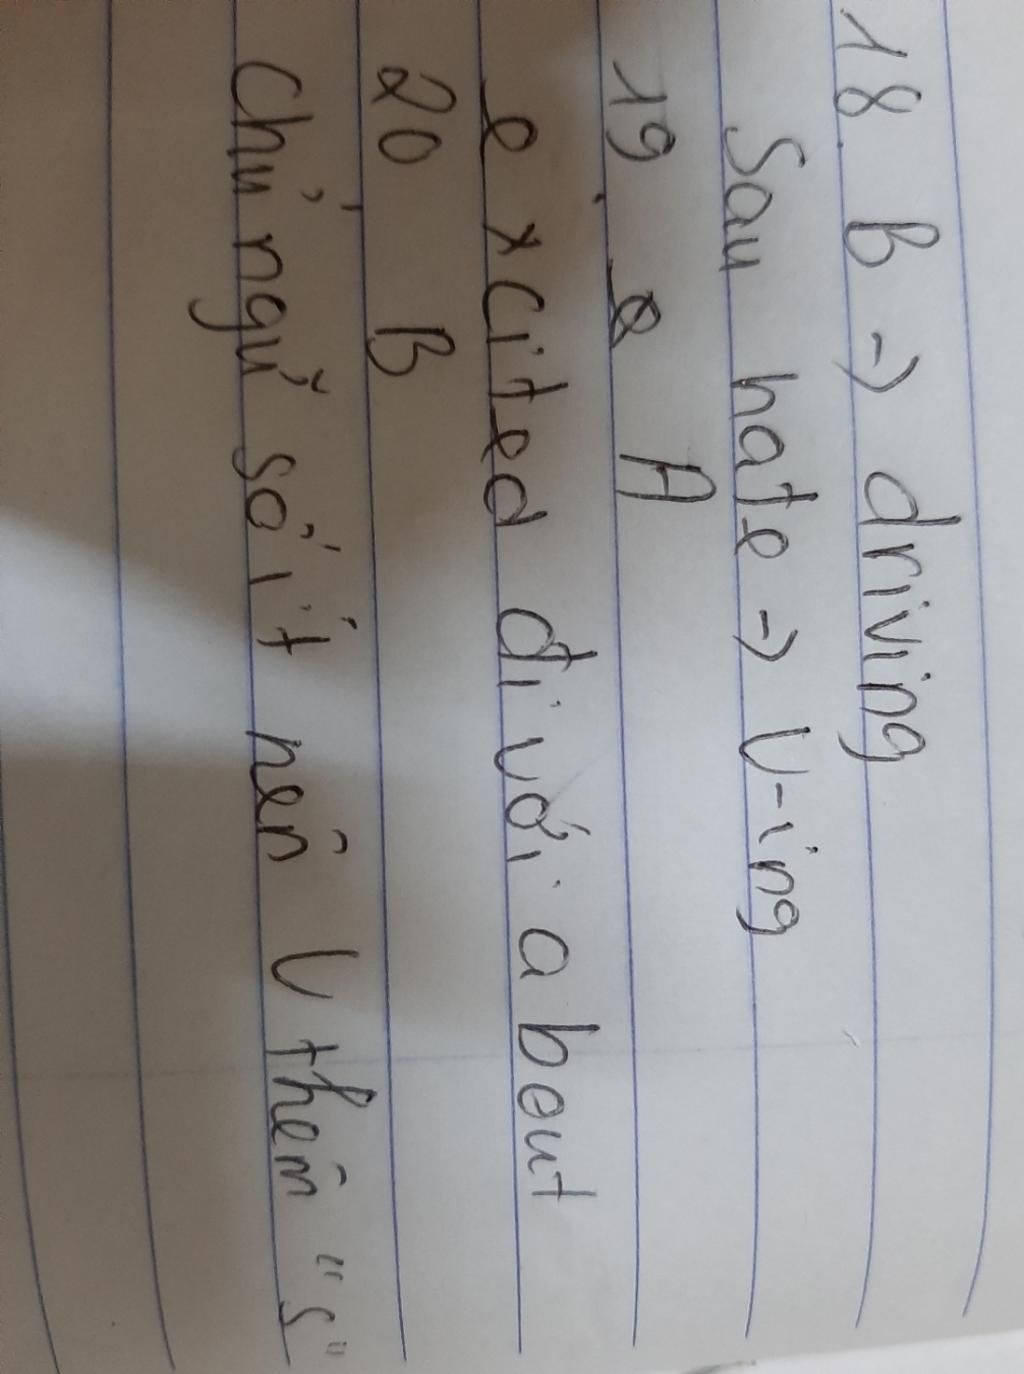 18. B -> driving
Sau hate -> V-ing
19. A
excited đi với about
20 B
Chủ ngữ số ít nên V thêm "s"